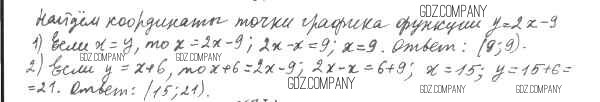 GDZ.COMPANY
Найдём координаты точки графика функции y=2x-9
1) Если x=y, то x=2x-9; 2x-x=9; x=9. Ответ: (9;9).
GDZ.COMPANY GDZ.COMPANY
2) Если y=x+6, то x+6=2x-9; 2x-x=6+9; x=15; y=15+6=
=21. Ответ: (15;21).
GDZ.COMPANY
GDZ.COMPANY